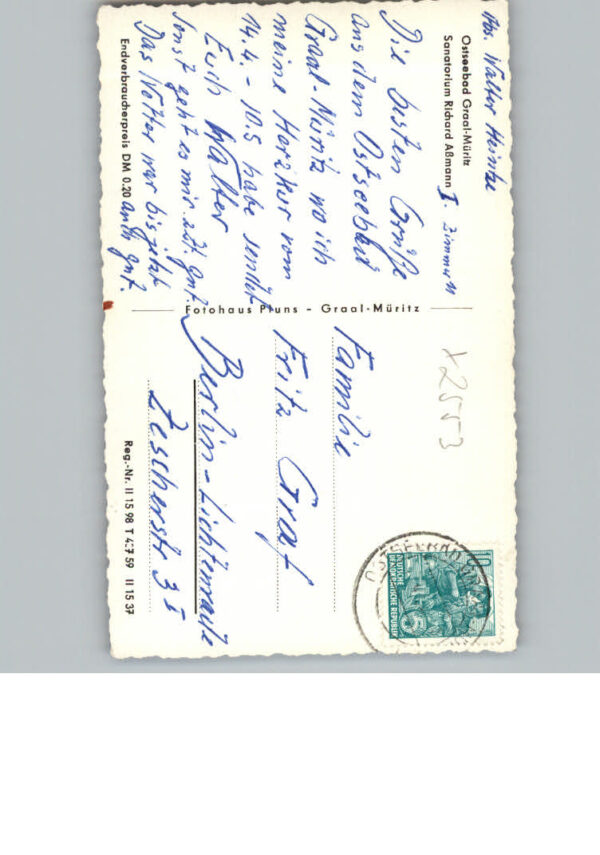 Abs. Walter Heintze
Ostseebad Graal-Müritz
Sanatorium Richard Aßmann I. Zimmer 11
Die besten Grüße
aus dem Ostseebad
Graal-Müritz wo ich
meine Herzkur vom
14.4. - 10.5 habe sendet
Euch Walter
Sonst geht es mir z.Zt. gut
Das Wetter war bis jetzt
auch gut.
Endverbraucherpreis DM 0.20
Fotohaus Pluns - Graal-Müritz
x2553
Familie
Fritz Graf
Berlin-Lichtenrade
Zescherstr 3 I
Reg.-Nr. II 15 98 T 437 59 II 15 37
10
DEUTSCHE
DEMOKRATISCHE REPUBLIK
OSTSEEBAD